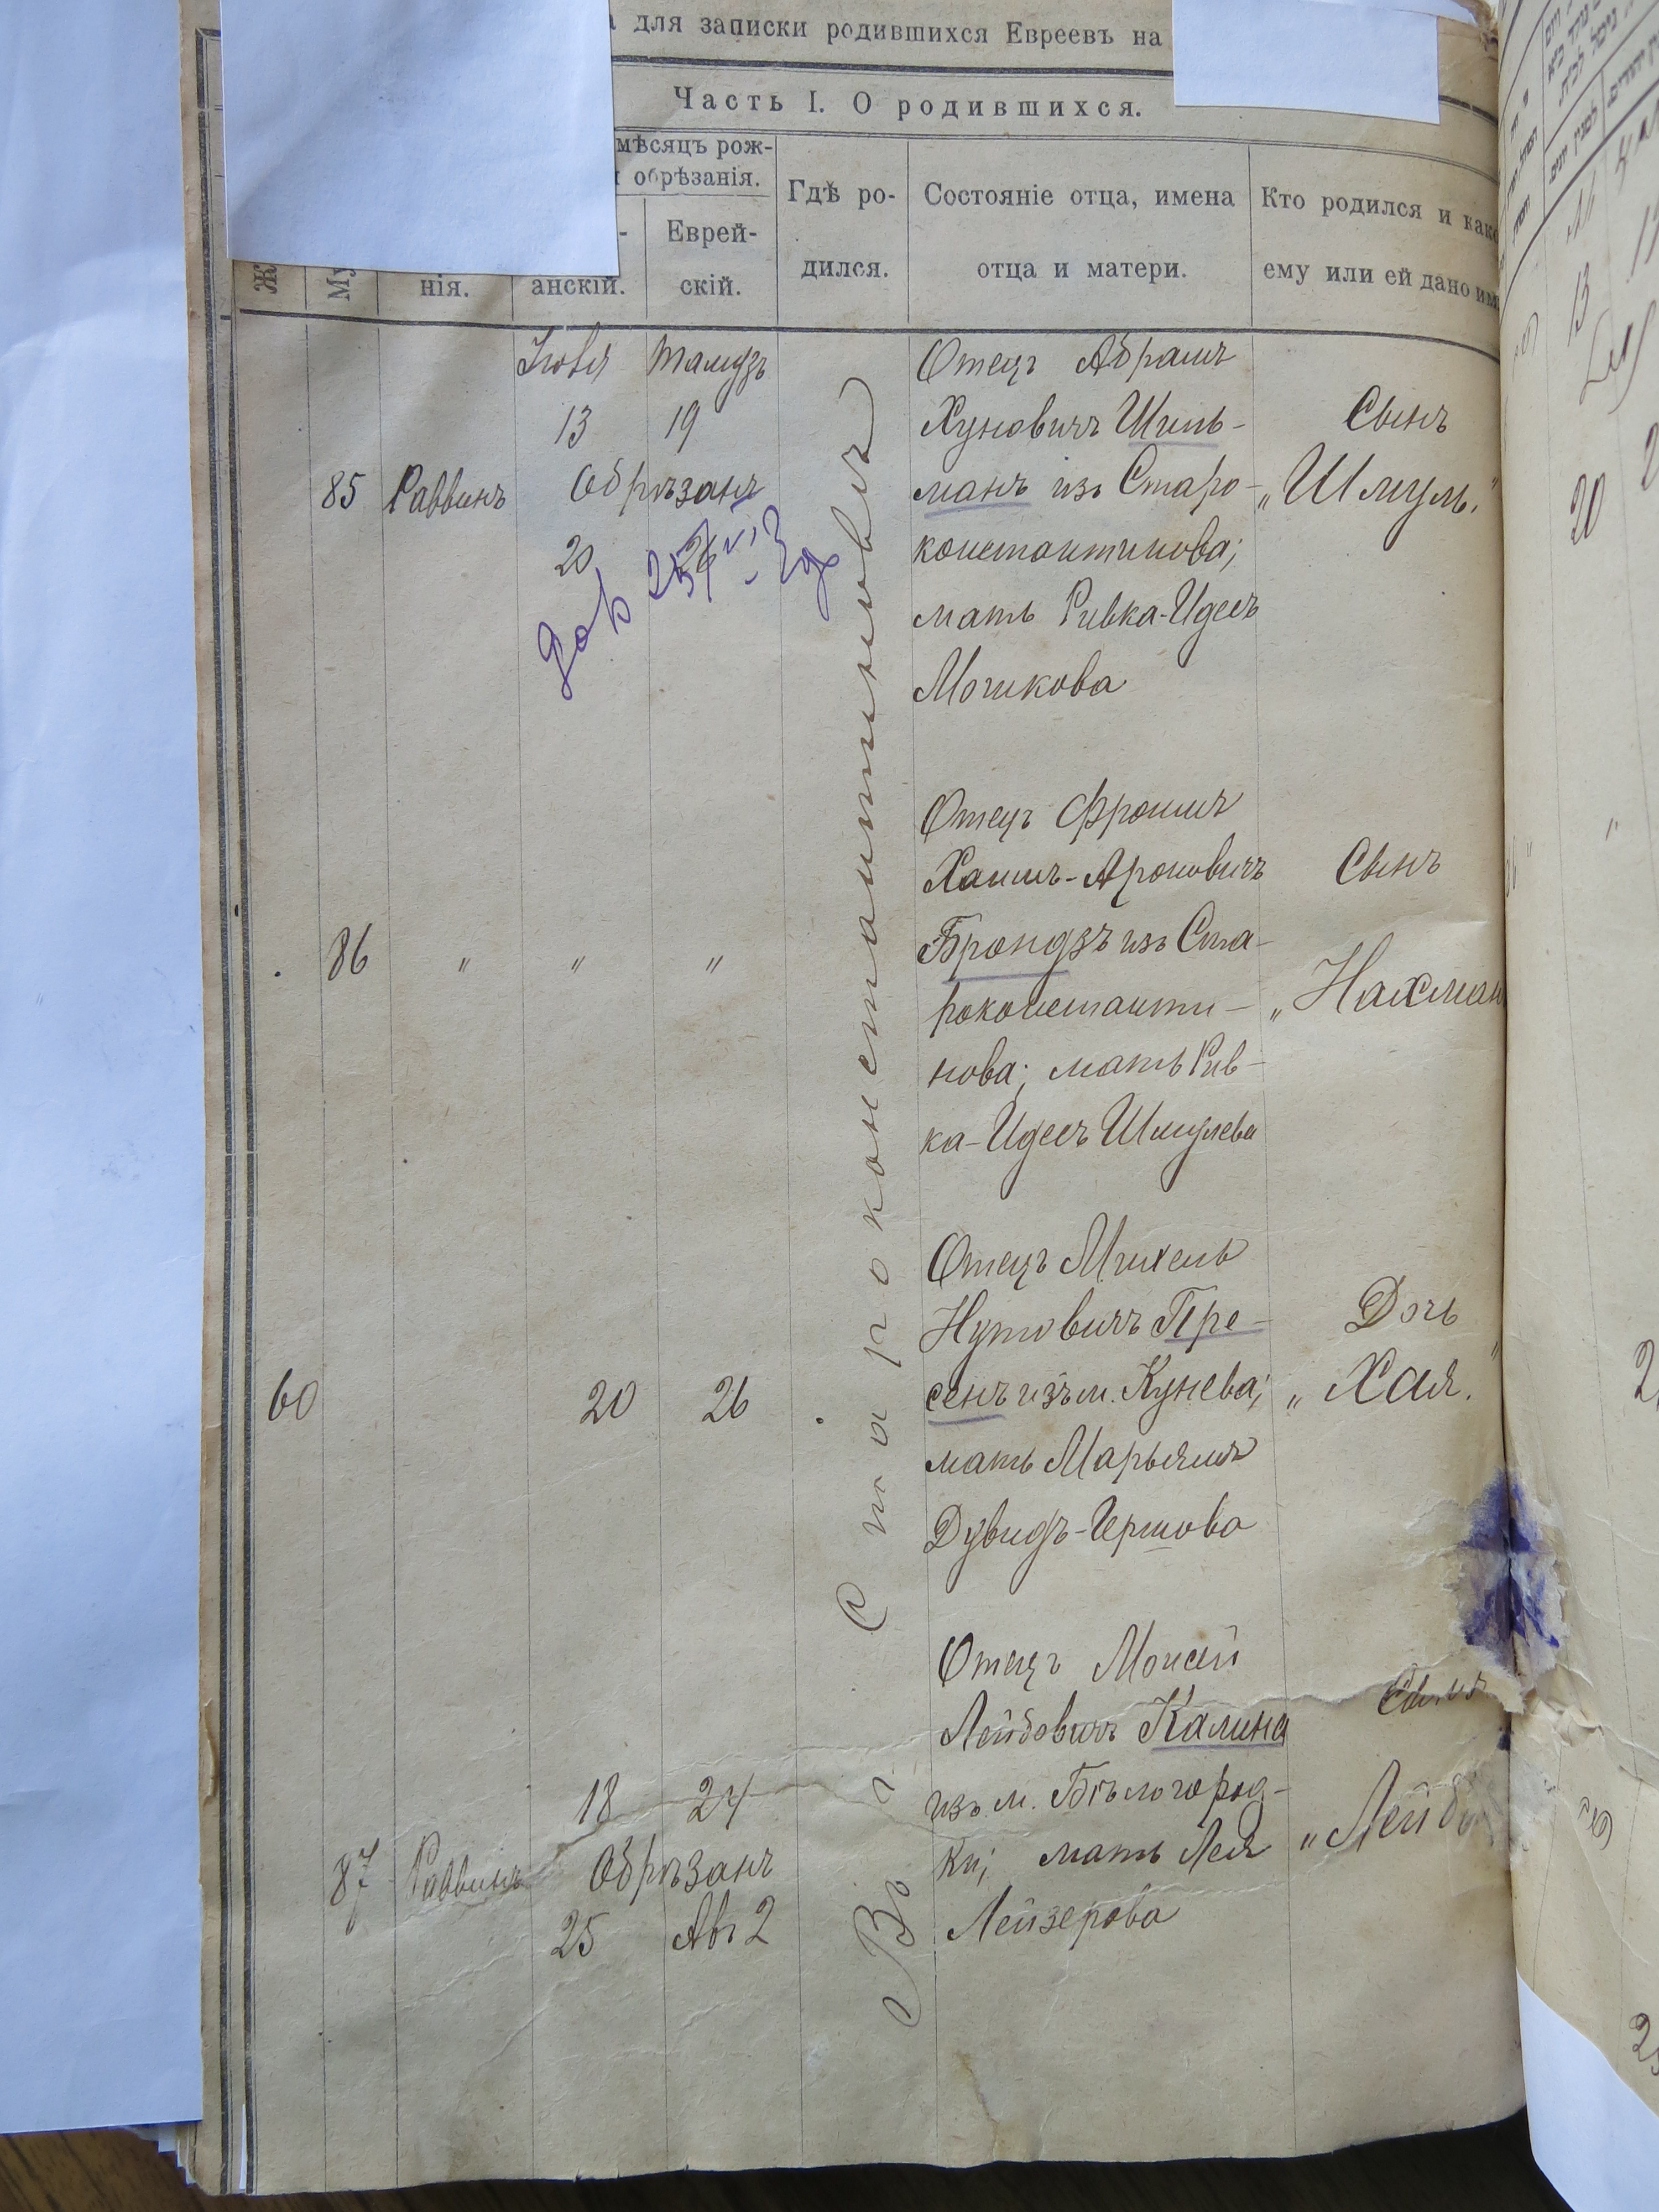 для записки родившихся Евреевъ на
Часть I. О родившихся.
мѣсяцъ рож-
обрѣзанія.
Еврей-
скій.
анскій.
нія.
Му
Ж
Гдѣ ро-
дился.
Состояніе отца, имена
отца и матери.
Кто родился и како
ему или ей дано имя
85
Раввинъ
Іюля Тамузъ
13 19
Обрѣзанъ
20 26
Въ г. Староконстантиновѣ
Отецъ Абрамъ
Хуновичъ Шиль-
манъ изъ Старо-
константинова;
мать Ривка-Идесъ
Мошкова
Сынъ
„Шмуль."
86
" " "
Отецъ Фроимъ
Хаимъ-Ароновичъ
Брондзъ изъ Ста-
роконстанти-
нова; мать Рив-
ка-Идесъ Шмулева
Сынъ
„Нахман
60
20 26
Отецъ Михель
Нутовичъ Пре-
сенъ изъ м. Кунева;
мать Марьямъ
Дувидъ-Гершова
Дочь
„Хая."
87
Раввинъ
18 24
Обрѣзанъ
25 Авъ 2
Отецъ Мойсей
Лейбовичъ Калина
изъ м. Бѣлогород-
ки; мать Лея
Лейзерова
Сынъ
„Лейб